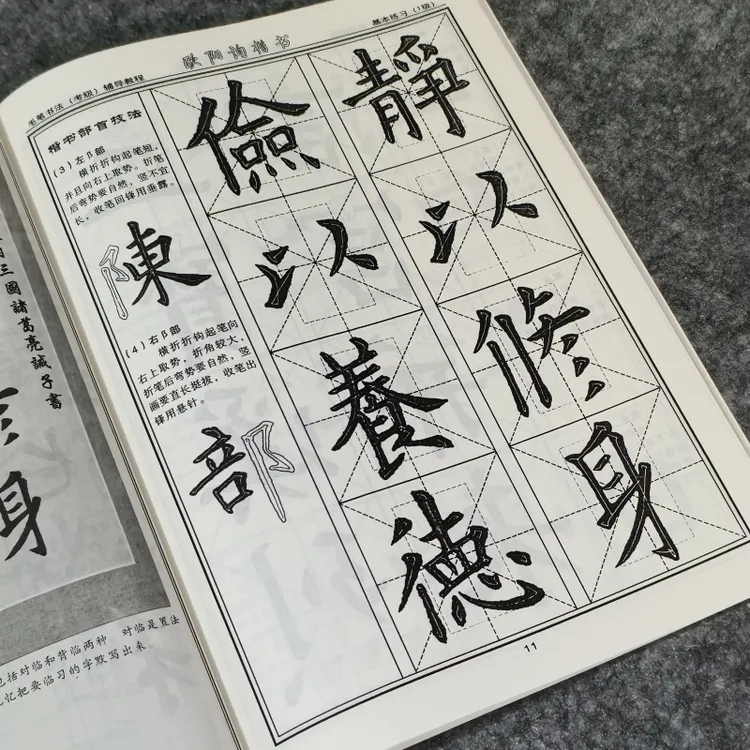 毛笔书法（考级）辅导教程
欧阳询楷书
基本练习（1级）
靜以修身
儉以養德
楷书部首技法
（3）左阝部
横折折钩起笔短，
并且向右上取势。折笔
后弯势要自然，竖不宜
长，收笔回锋用垂露。
陳
（4）右阝部
横折折钩起笔向
右上取势，折角较大，
折笔后弯势要自然，竖
画要直长挺拔，收笔出
锋用悬针。
部
11
三國諸葛亮誡子書
身
括对临和背临两种 对临是置法
忆把要临习的字默写出来